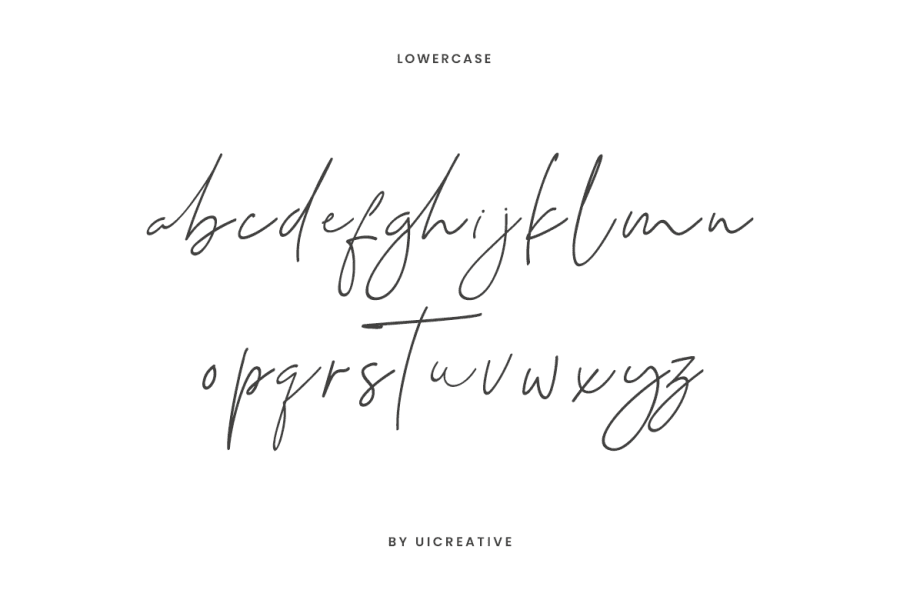 LOWERCASE
abcdefghijklmn
opqrstuvwxyz
BY UICREATIVE